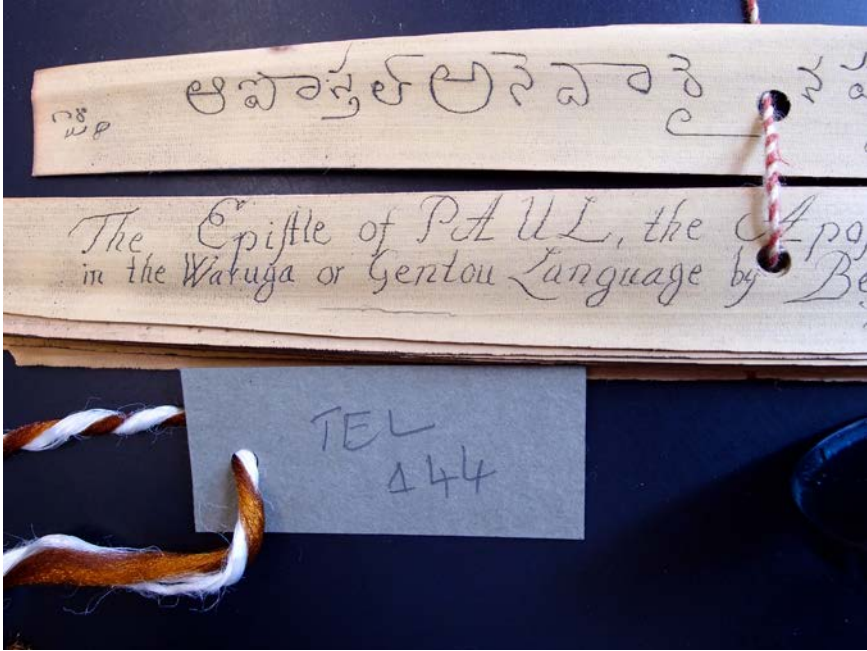 ఆపోస్తల్
The Epiſtle of PAUL, the Apo
in the Waruga or Gentou Language by Be
TEL
144